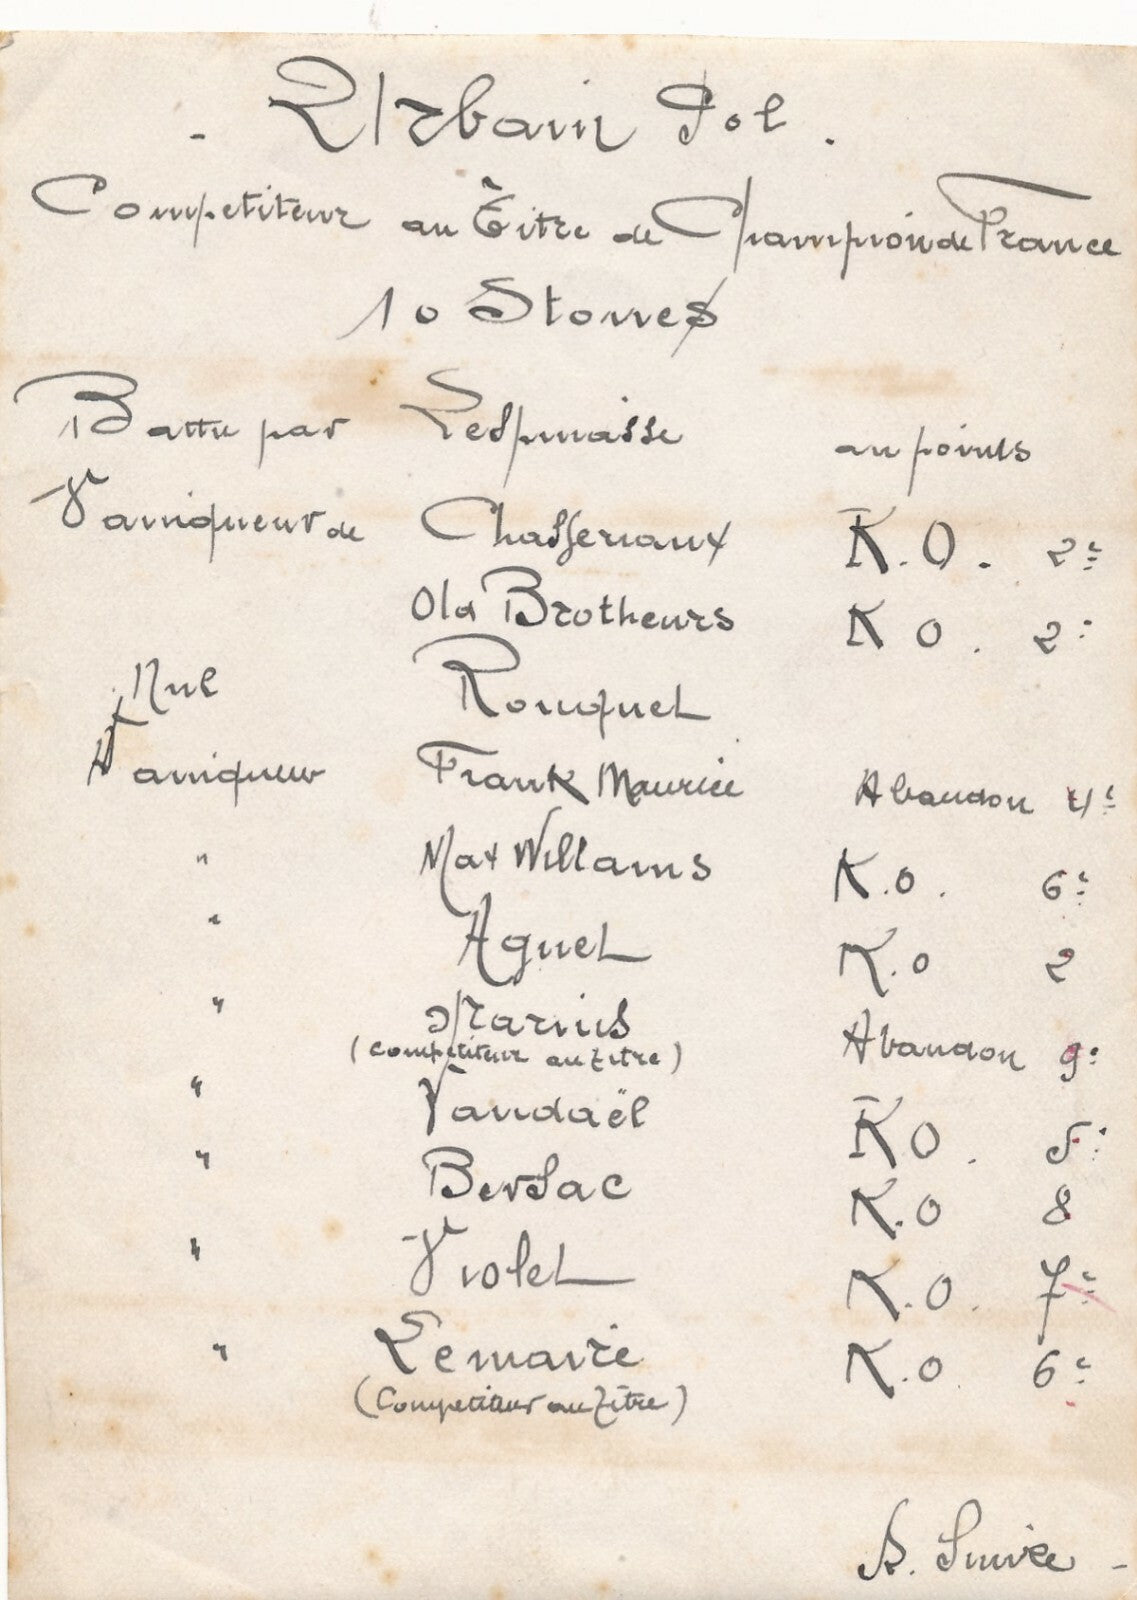 - Urbain Pol.
Competiteur au Titre de Champion de France
10 Stones
Battu par Lespinasse au points
Vainqueur de Chasseriaux K.O. 2e
Old Brotheurs K O. 2e
Nul Rouquet
Vainqueur Frank Maurice Abandon 4e
" Max Willams K.O. 6e
" Aguel K.O 2
" Marius Abandon 9e
(Competiteur au titre)
" Vandaël K O. 5e
" Bersac K.O 8
" Violet K.O. 7e
" Lemaire K.O. 6e
(Competiteur au Titre)
A. Suivre -